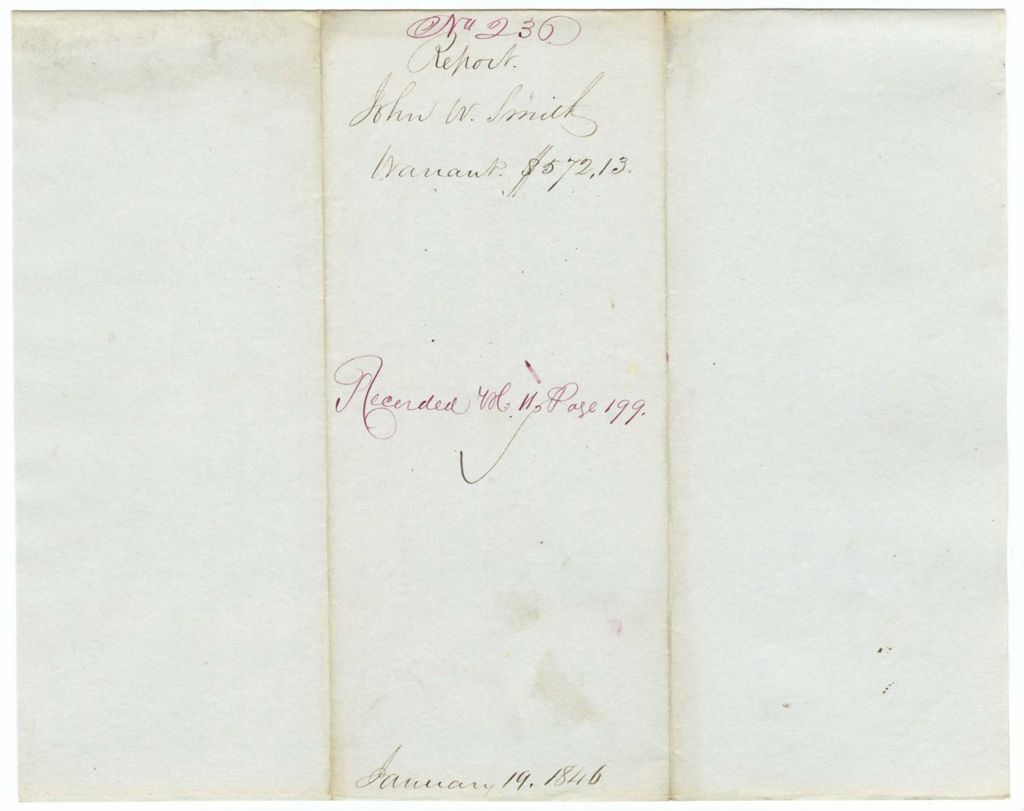 No 236
Report.
John W. Smith
Warrant. $572,13.
Recorded Vol. 11, Page 199.
January 19. 1846